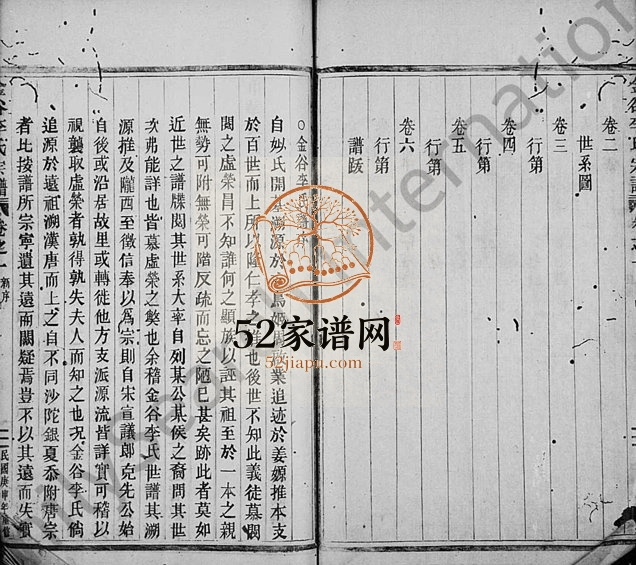 卷二
世系圖
卷三
行第
卷四
行第
卷五
行第
卷六
行第
譜跋
金谷李氏
自姒氏開 溯源於 鳥 業追迹於姜嫄推本支
於百世而上所以隆仁孝之 也後世不知此義徒慕閥
閱之虛榮昌不知誰何之顯族以誣其祖至於一本之親
無勢可附無榮可階反疏而忘之陋巳甚矣跡此者莫如
近世之譜牒閱其世系大率自列某公某侯之裔問其世
次弗能詳也皆慕虛榮之獘也余稽金谷李氏世譜其溯
源推及隴西至徵信奉以爲宗則自宋宣議郎克先公始
自後或沿居故里或轉徙他方支派源流皆詳實可稽以
視襲取虛榮者孰得孰失夫人而知之也况金谷李氏倘
追源於遠祖溯漢唐而上之自不同沙陀銀夏忝附唐宗
者比按譜所宗寧遺其遠而闕疑焉豈不以其遠而失實
金谷李氏宗譜
卷之一
新序
民國庚
52家谱网
52jiapu.com
International